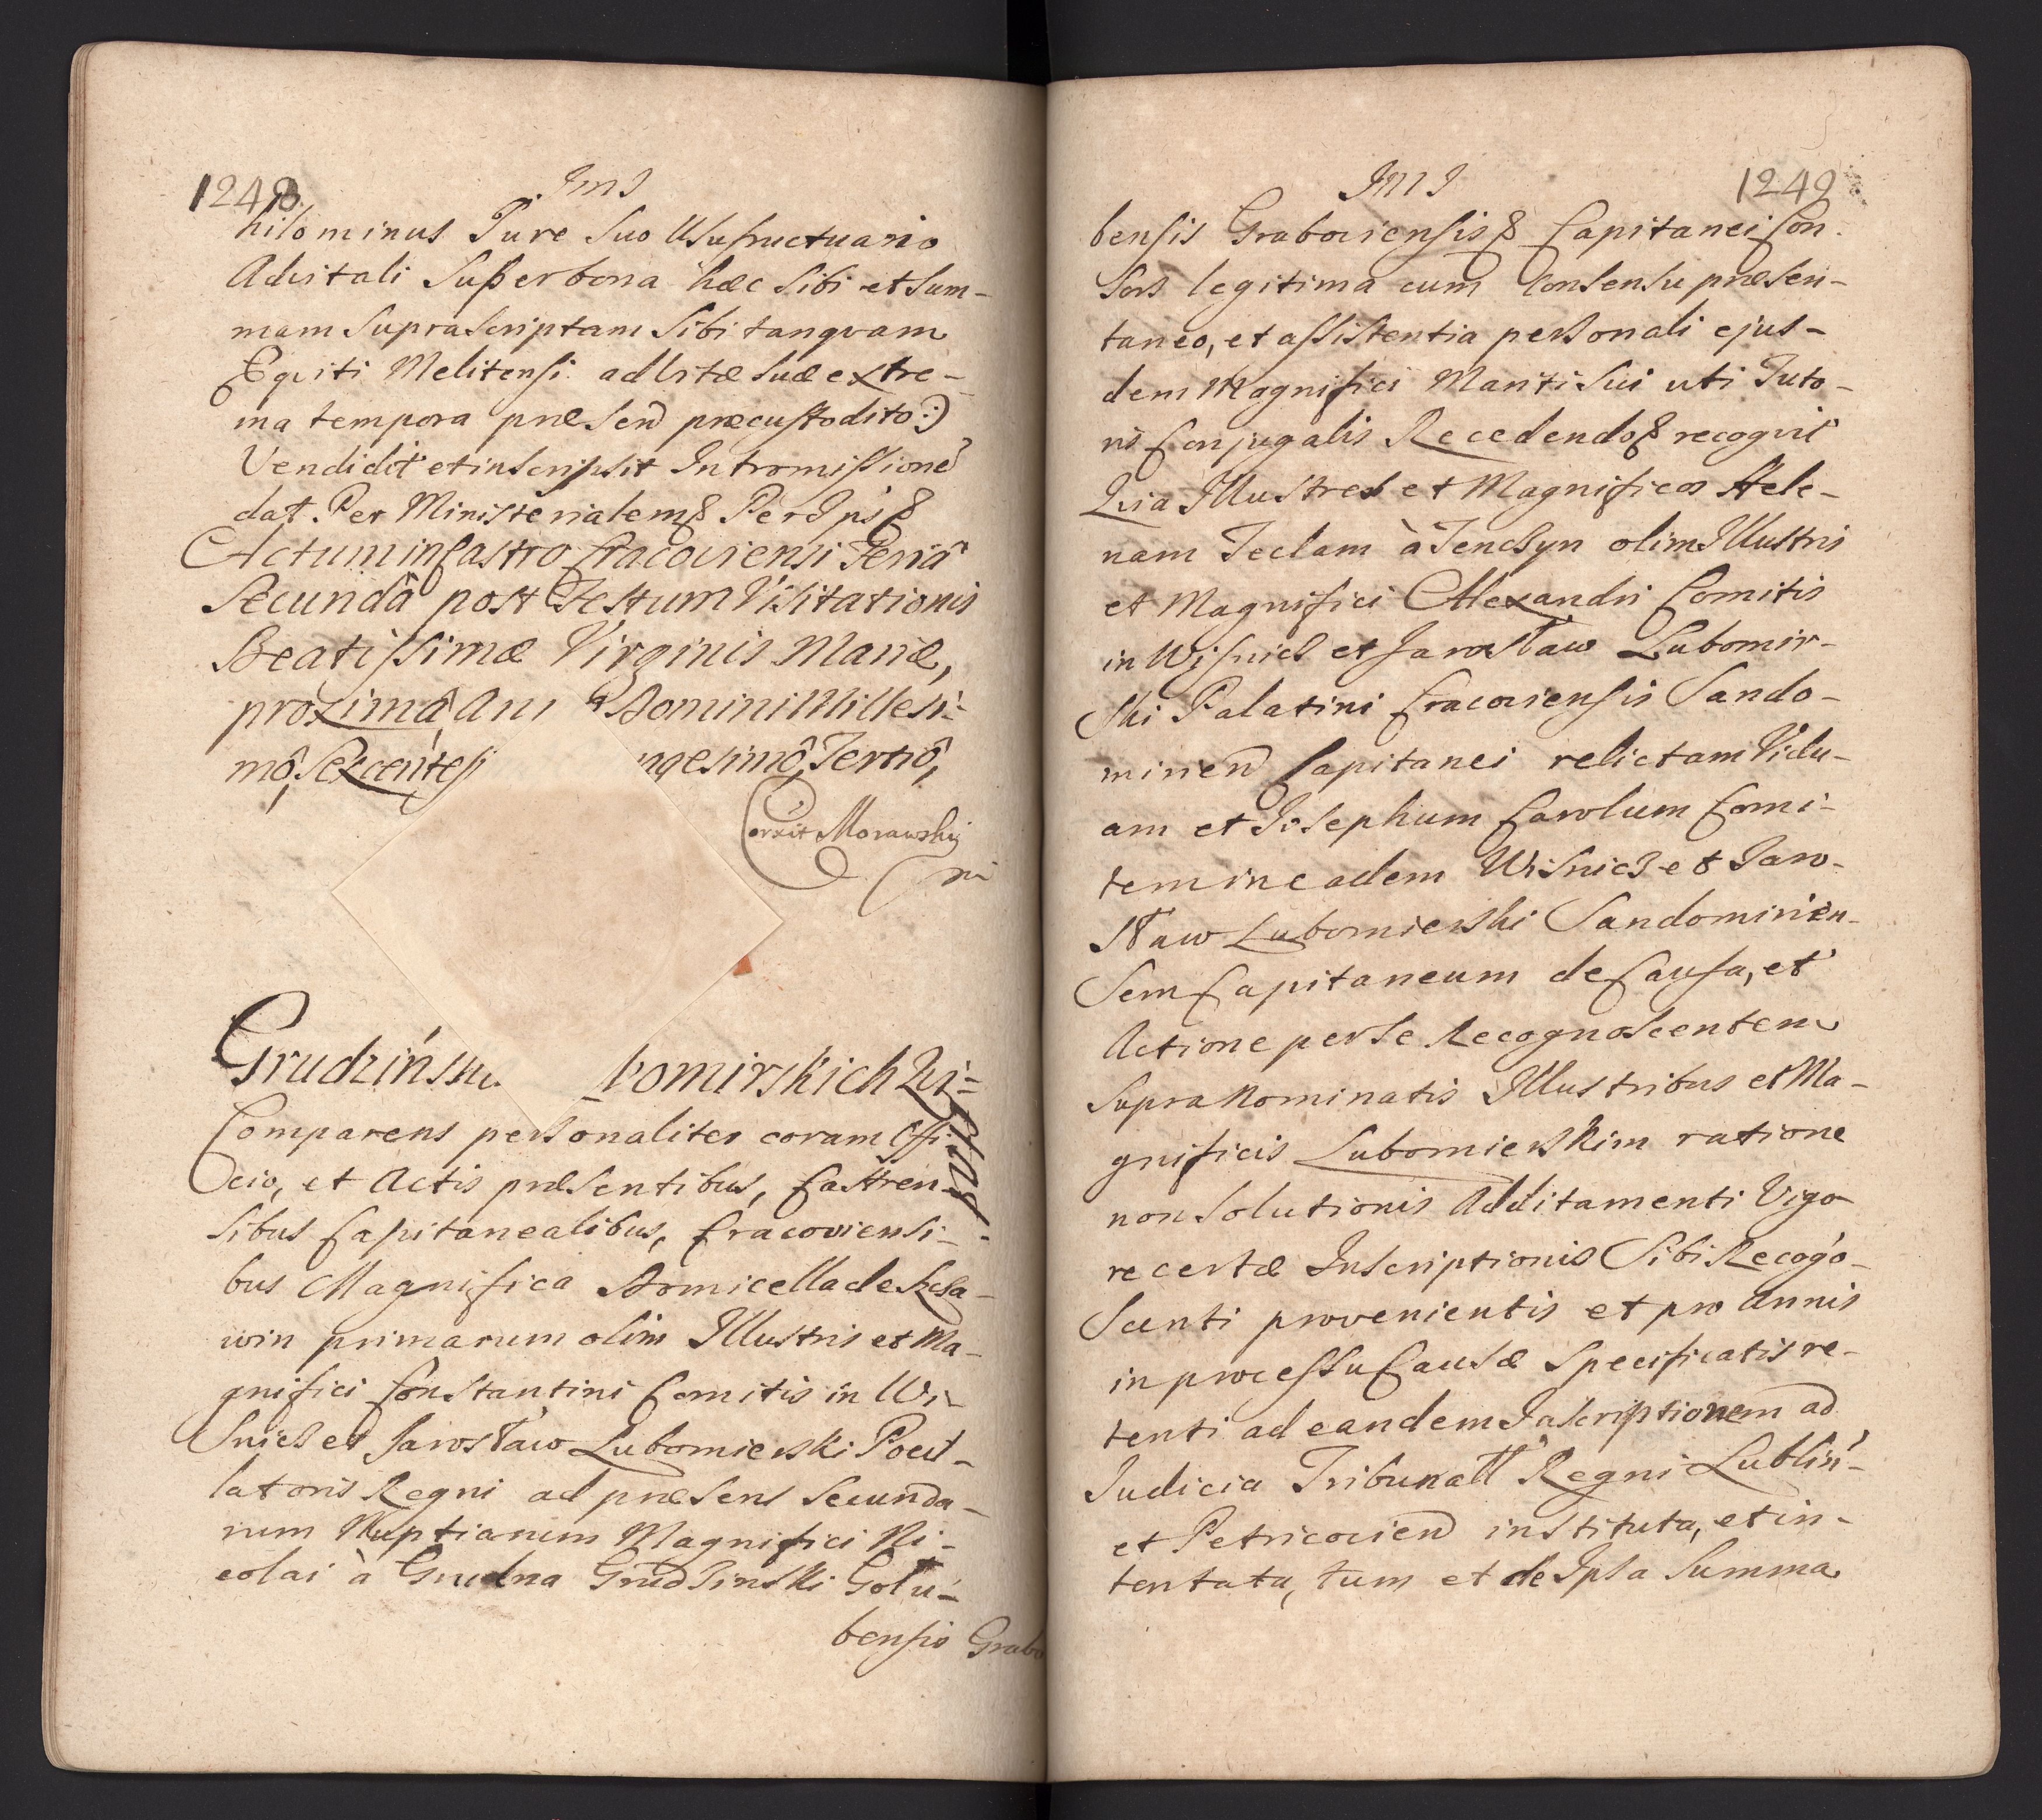 1248
JmJ
hilominus Jure suo Usufructuario
Advitali Super bona hæc sibi et sum-
mam supra scriptam sibi tanqvam
Eqviti Melitensi ad Vitæ suæ extre-
ma tempora præsen præcustodito:)
Vendidit et inscripsit Intromissione
dat. Per Ministerialem& Per Jps&
Actum in Castro Cracoviensi Feriâ
Secundâ post Festum Visitationis
Beatissimæ Virginis Mariæ,
proximâ, Domini Millesi:
mô, Sexcentesi gesimô, Tertiô,
Corxit Morawskij
mp
Grudzińsk bomirskich Qvi=
=etat.
Comparens personaliter coram Offi
cio, et Actis præsentibus, Castren-
sibus Capitanealibus, Cracoviensi-
bus Magnifica Domicella de
win primarum olim Illustris et Ma-
gnifici Constantini Comitis in Wi-
snicz et Jarosław Lubomierski Pocil-
latoris Regni ad præsens Secunda-
rum Nuptiarum Magnifici Ni-
colai à Grudna Grudsinski Golu-
bensis Grabo

JMJ
1249
bensis Graboviensis& Capitanei Con-
sors legitima cum Consensu præsen-
taneo, et assistentia personali ejus-
dem Magnifici Mariti Sui uti Tuto-
ris Conjugalis Recedendo& recogvit
Qvia Illustres et Magnificos Hele-
nam Teclam à Tenczyn olim Illustris
et Magnifici Alexandri Comitis
in Wisnicz et Jarosław Lubomir-
ski Palatini Cracoviensis Sando-
mirien Capitanei relictam Vidu-
am et Josephum Carolum Comi-
tem in eadem Wisnicz et Jaro-
sław Lubomierski Sandomirien-
sem Capitaneum de Causa, et
Actione per se Recognoscentem
supra Nominatis Illustribus et Ma-
gnificis Lubomierskim ratione
non solutionis Additamenti Vigo
re certæ Inscriptionis Sibi Recogo-
scenti provenientis et pro Annis
in processu Causæ Specificatis re-
tenti ad eandem Inscriptionem ad
Judicia Tribunall Regni Lublin-
et Petricovien instituta, et in-
tentata, tum et de Ipsa Summa